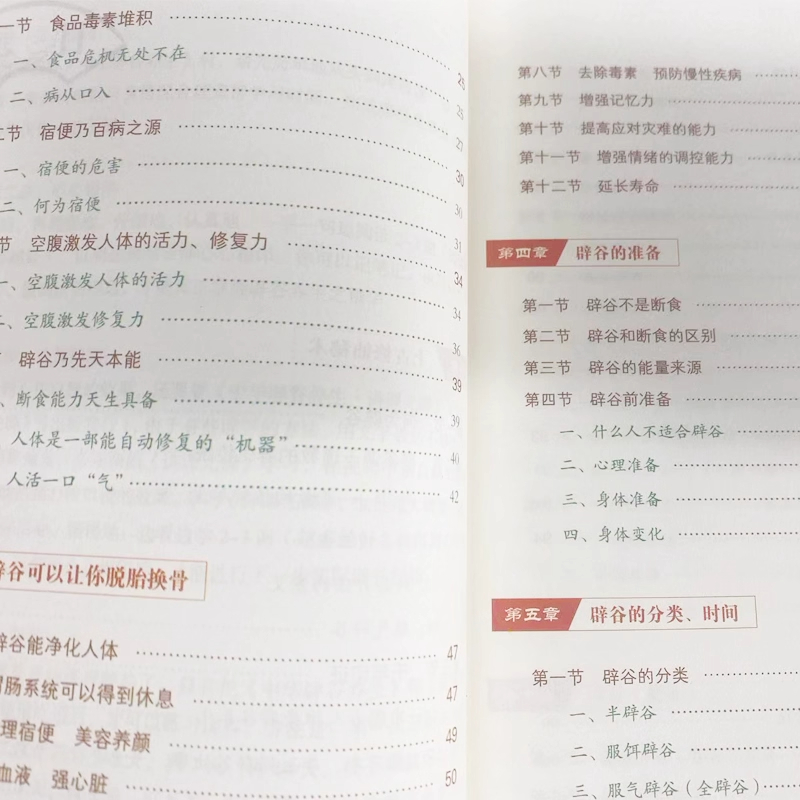 一节 食品毒素堆积
一、食品危机无处不在 25
二、病从口入 25
二节 宿便乃百病之源 27
一、宿便的危害 30
二、何为宿便 30
节 空腹激发人体的活力、修复力 31
一、空腹激发人体的活力 34
二、空腹激发修复力 34
36
辟谷乃先天本能 39
、断食能力天生具备 39
人体是一部能自动修复的“机器” 40
人活一口“气” 42
辟谷可以让你脱胎换骨
辟谷能净化人体 47
胃肠系统可以得到休息 47
理宿便 美容养颜 49
血液 强心脏 50
第八节 去除毒素 预防慢性疾病
第九节 增强记忆力
第十节 提高应对灾难的能力
第十一节 增强情绪的调控能力
第十二节 延长寿命
第四章 辟谷的准备
第一节 辟谷不是断食
第二节 辟谷和断食的区别
第三节 辟谷的能量来源
第四节 辟谷前准备
一、什么人不适合辟谷
二、心理准备
三、身体准备
四、身体变化
第五章 辟谷的分类、时间
第一节 辟谷的分类
一、半辟谷
二、服饵辟谷
三、服气辟谷（全辟谷）